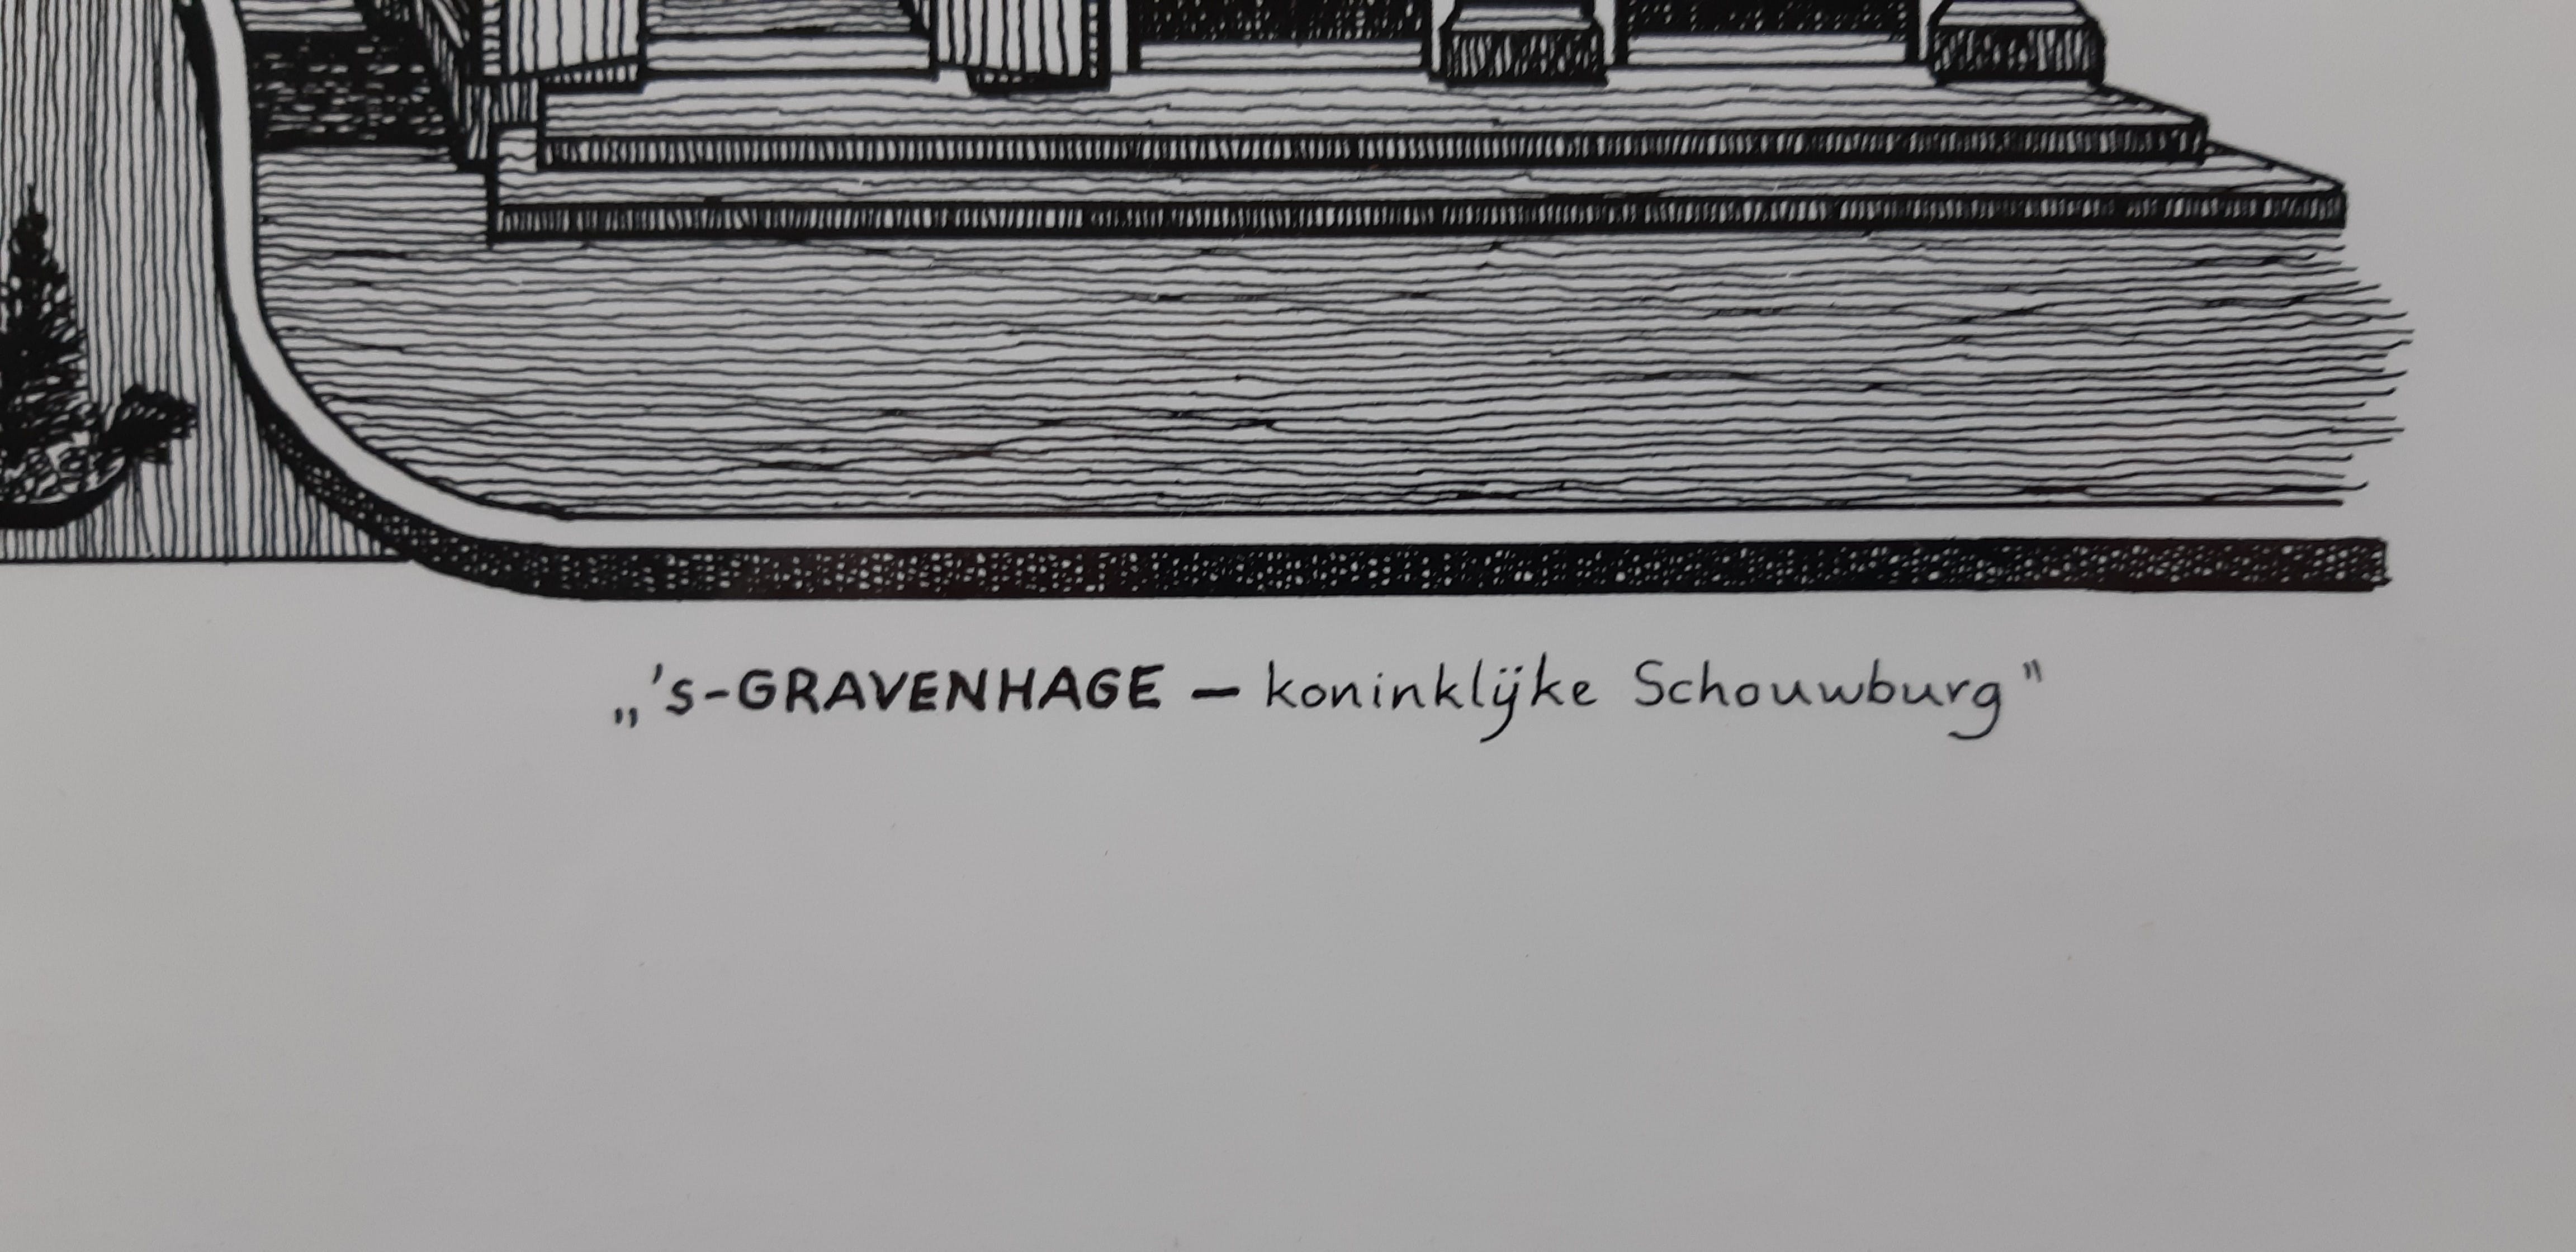 „'s-GRAVENHAGE — koninklijke Schouwburg"